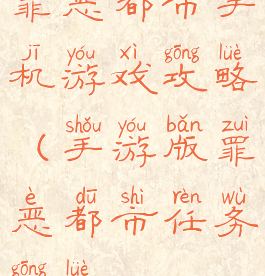 罪恶都市手
jī yóu xì gōng lüè
机游戏攻略
shǒu yóu bǎn zuì
（手游版罪
è dū shì rèn wù
恶都市任务
gōng lüè